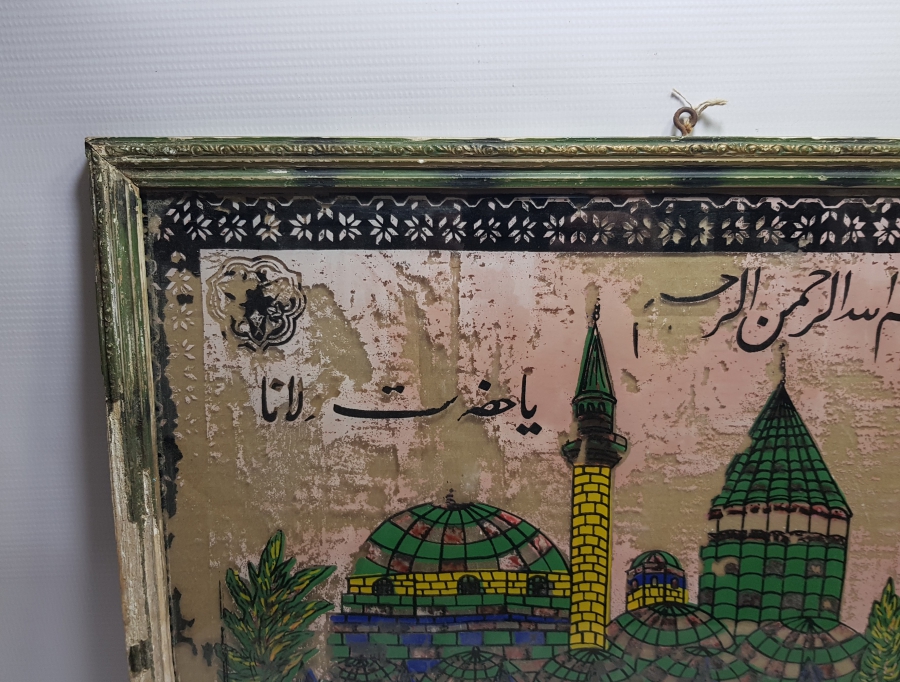 الله الرحمن الرحيم
يا حضرت مولانا